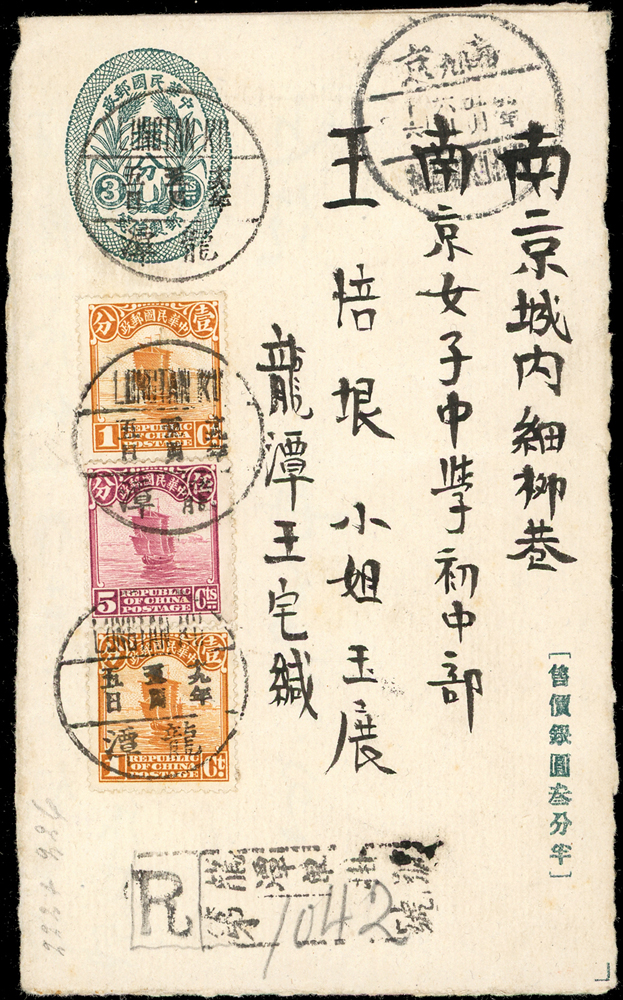 南京城內細柳巷
南京女子中學初中部
王
垠小姐玉展
龍潭王宅緘
[售價銀圓叁分半]
南京
中華民國郵政
分
3
LUNGTAN KU
五日
龍潭
中華民國郵政
壹分
REPUBLIC OF CHINA POSTAGE
1 Ct.
LUNGTAN KU
五日
龍潭
中華民國郵政
分
REPUBLIC OF CHINA POSTAGE
5 Cts
LUNGTAN KU
九年
五月
五日
龍潭
壹分
中華民國郵政
REPUBLIC OF CHINA POSTAGE
1 Ct.
R
龍潭
掛號
第
1042